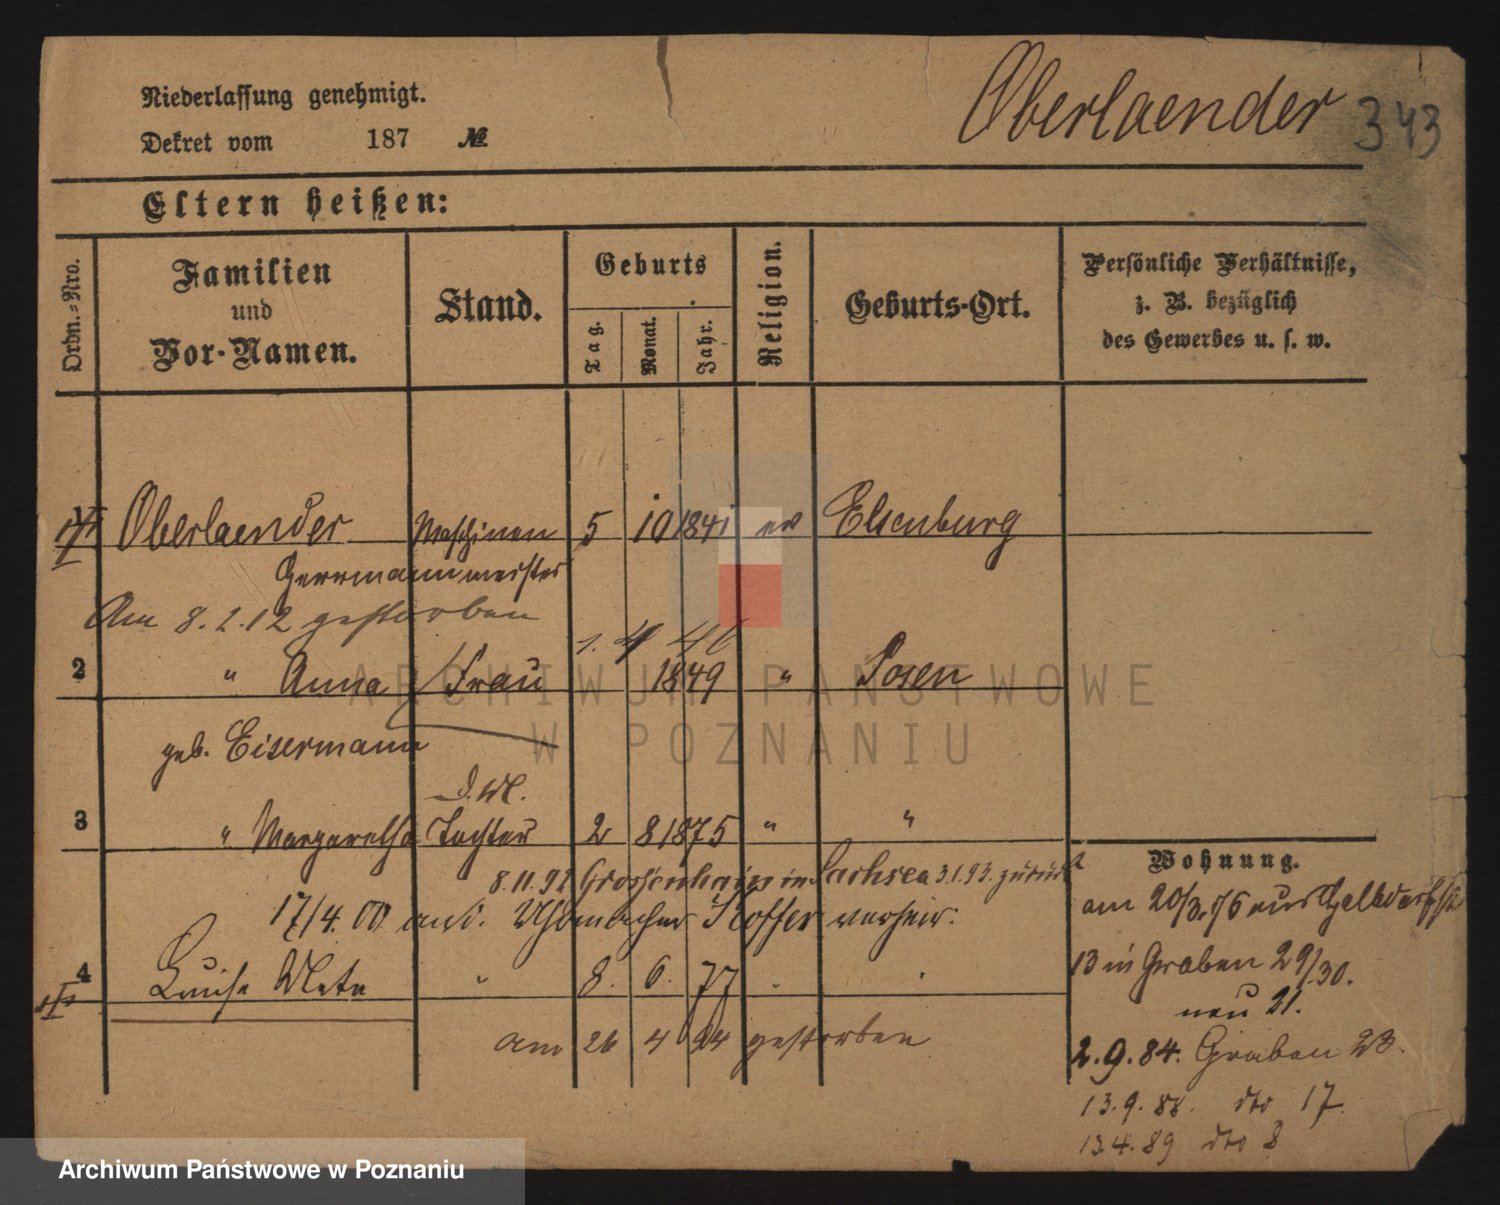 Niederlassung genehmigt.
Dekret vom 187 №
Oberlaender 343
Eltern heißen:
Ordn.-Nro.
Familien
und
Vor-Namen.
Stand.
Geburts
Tag.
Monat.
Jahr.
Religion.
Geburts-Ort.
Persönliche Verhältnisse,
z. B. bezüglich
des Gewerbes u. s. w.
1 Oberlaender Maschinen 5 10 1841 ev Elsenburg
Herrmann meister
Am 8.2.12 gestorben
1. 4 46
2 " Anna Frau 1849 " Posen
geb. Eisermann
3 " Margaretha Tochter 2 8 1875 " "
8.11.92 Grossenhain in Sachsen 3.1.93. zurück
17/4.00 an verheir.
4 Luise Meta " 8. 6. 77
am 26 4 94 gestorben
Wohnung.
am 20/3.76 aus
13 in Graben 29/30.
neu 21.
2.9.84. Graben 23.
13.9.88. dto 17.
13.4.89 dto 8
ARCHIWUM PAŃSTWOWE
W POZNANIU
Archiwum Państwowe w Poznaniu